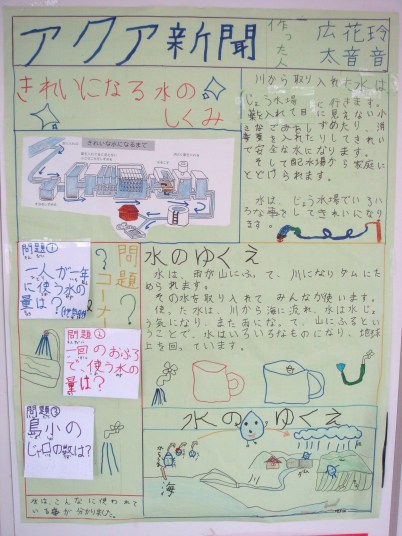 アクア新聞
作った人
広太
花音
玲音
きれいになる水の
しくみ
川から取り入れた水は
じょう水場へ行きます。
薬を入れて目に見えない小
さなごみをしずめたり、消
毒薬を入れたりしてきれい
で安全な水になります。
そして配水場から家庭に
とどけられます。
水は、じょう水場でいろい
ろな事をしてきれいになりま
す。
きれいな水になるまで
問題コーナー
?
?
問題①
一人が一年
に使う水の
量は?
問題②
一回のおふろ
で、使う水の
量は?
問題③
島小の
じゃ口の数は?
水は、こんなに使われて
いる事が分かりました。
水のゆくえ
水は、雨が山にふって、川になりダムにた
められます。
その水を取り入れて みんなが使います。
使った水は、川から海に流れ、水は水じょ
う気になり、また雨になって、山にふるとい
うことで、水はいろいろなものになり、地球
上を回っています。
水のゆくえ
海